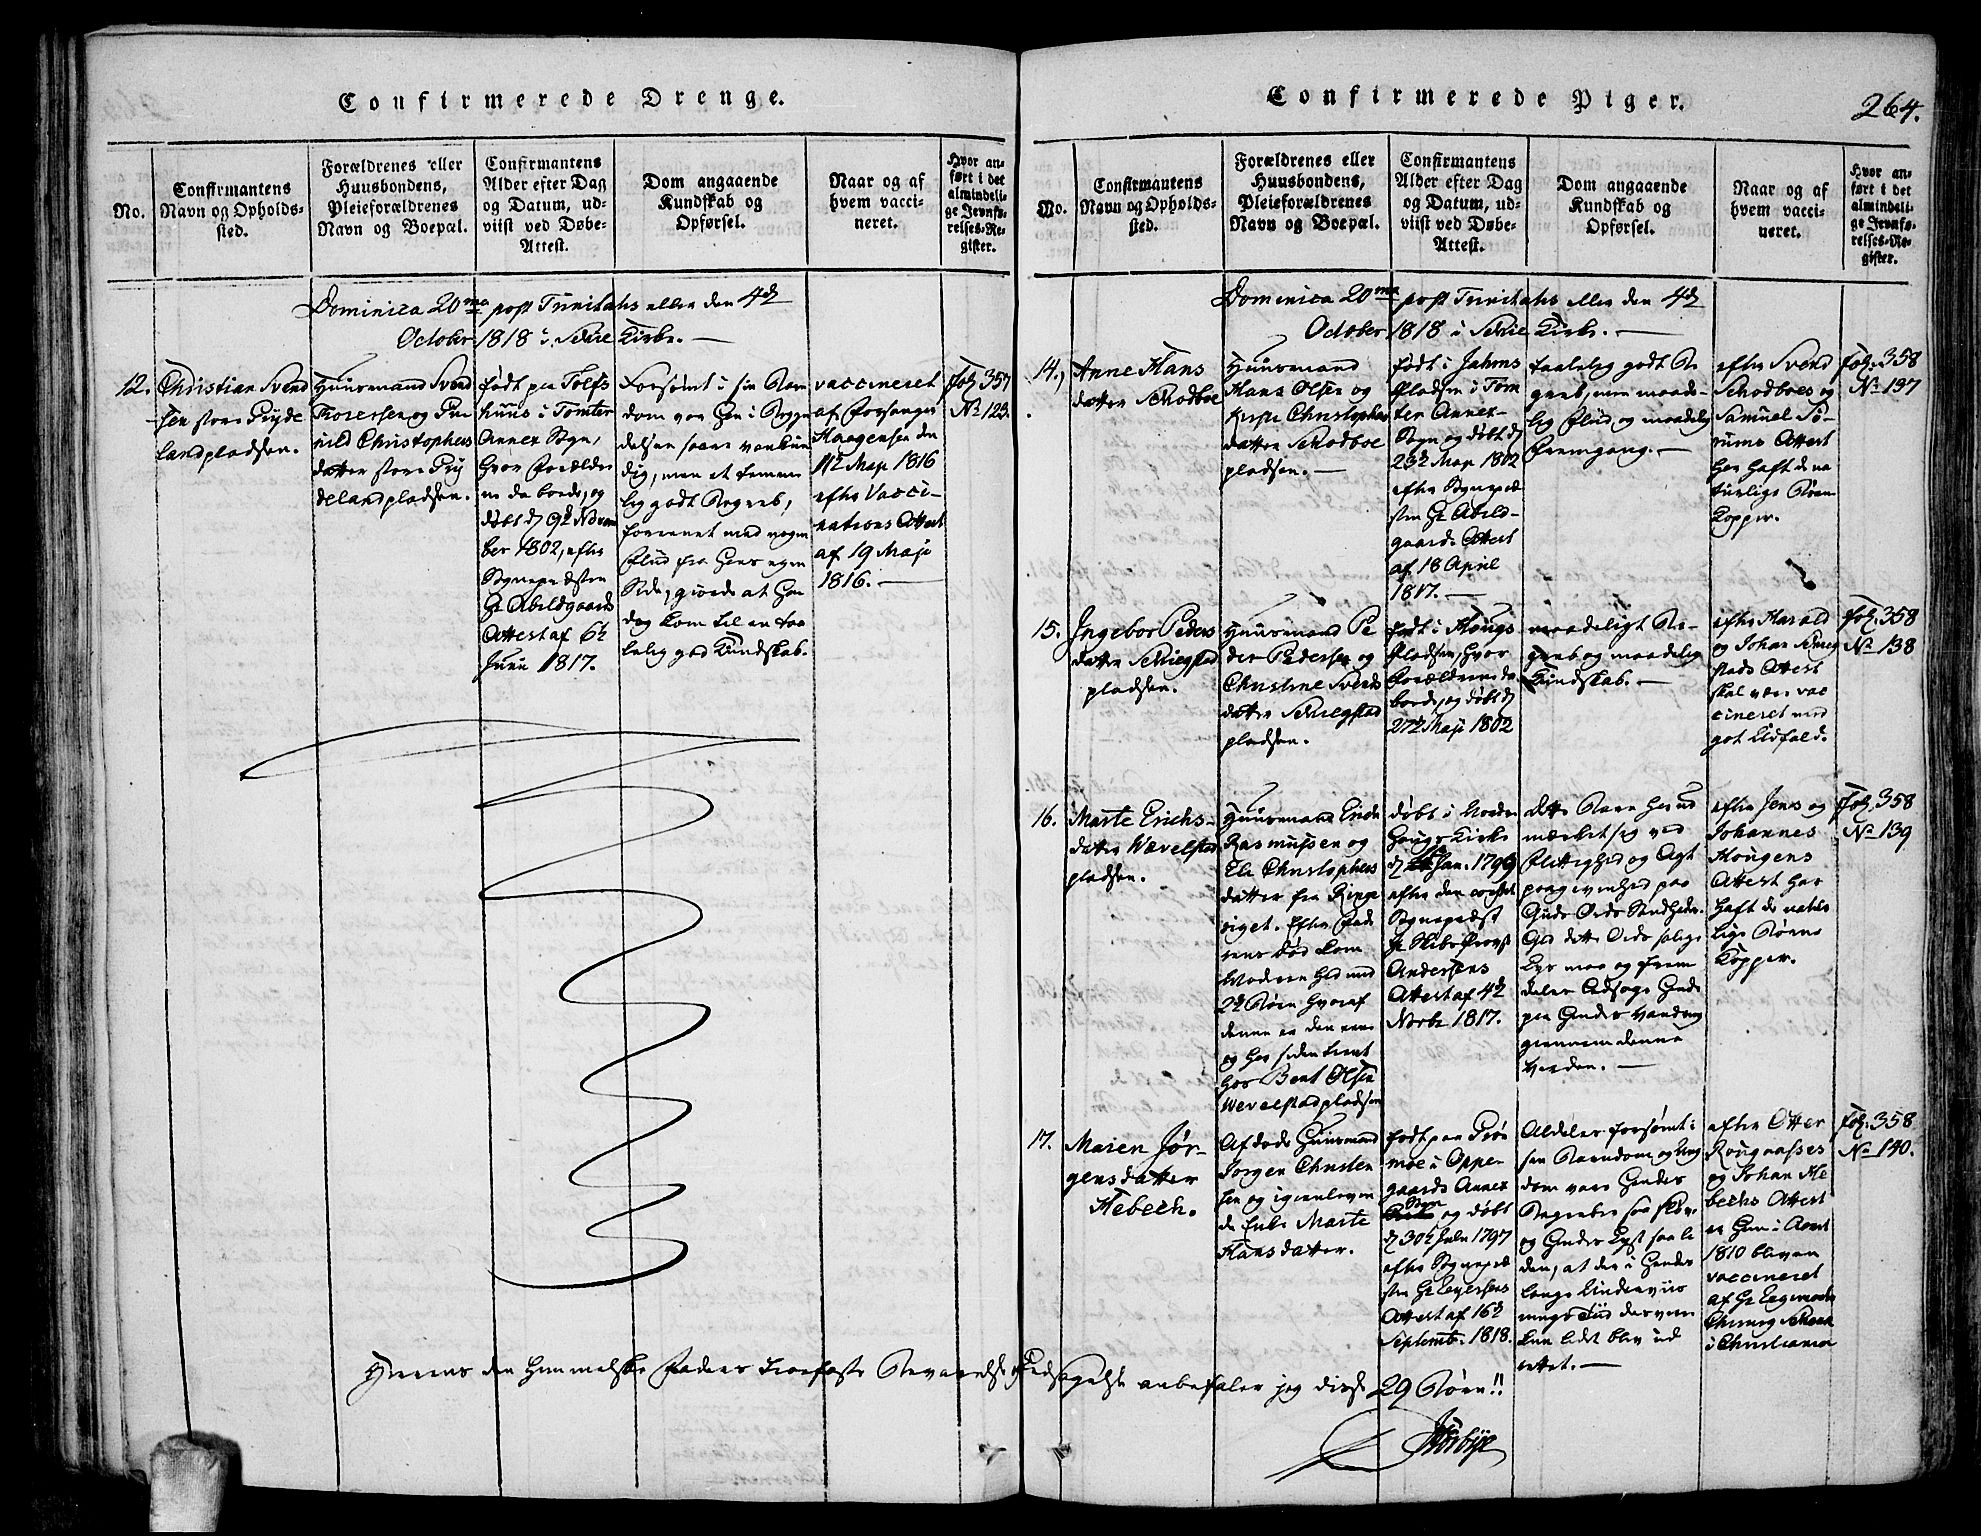 Confirmerede Drenge.
No.
Confirmantens
Navn og Opholds-
sted.
Forældrenes eller
Huusbondens,
Pleieforældrenes
Navn og Boepæl.
Confirmantens
Alder efter Dag
og Datum, ud-
viist ved Døbe-
Attest.
Dom angaaende
Kundskab og
Opførsel.
Naar og af
hvem vacci-
neret.
Hvor an-
ført i det
almindeli-
ge Jevnfø-
relses-Re-
gister.
Dominica 20ma post Trinitatis eller den 4de
October 1818 i Schie Kirke.
12.
Christian Svend
sen store Tryde
landpladsen.
Huusmand Svend
Toresen og
Christophers
datter store Try
delandpladsen.
født paa Tolfs
huus i Tomter
Annex Sogn,
hvor Forældre
ne da boede, og
døbt d 9de Novem
ber 1802, efter
Sognepræsten
Hr Abildgaards
Attest af 6te
Junii 1817.
Forsømt i sin Barn
dom var han i Begyn
delsen saare vankun
dig, men et temme
lig godt Begreb,
forenet med nogen
Flid fra hans egen
Side, giorde at han
dog kom til en taa
lelig god Kundskab.
vaccineret
af Forsanger
Haagensen den
11te Maji 1816
efter Vacci-
nations Attest
af 19 Maji
1816.
Fol. 357
No 123.
Confirmerede Piger.
264.
No.
Confirmantens
Navn og Opholds-
sted.
Forældrenes eller
Huusbondens,
Pleieforældrenes
Navn og Boepæl.
Confirmantens
Alder efter Dag
og Datum, ud-
viist ved Døbe-
Attest.
Dom angaaende
Kundskab og
Opførsel.
Naar og af
hvem vacci-
neret.
Hvor an-
ført i det
almindeli-
ge Jevnfø-
relses-Re-
gister.
Dominica 20ma post Trinitatis eller den 4de
October 1818 i Schie Kirke.
14.
Anne Hans
datter Schodboe
Huusmand
Hans Olsen og
Christophers
datter Schodboe
pladsen.
født i
Pladsen i Tom
ter Annex-
Sogn og døbt d
23de Maji 1802
efter Sognepræ
sten Hr Abild-
gaards Attest
af 18 April
1817.
taalelig godt Be
greb, men maade-
lig Flid og maadelig
Fremgang.
efter Svend
Schodboes og
Samuel Sø-
rums Attest
har haft de na
turlige Børne
Kopper.
Fol. 358
No 137
15.
Ingebor Peders
datter Schiegstad
pladsen.
Huusmand Pe
der Pedersen og
Christine Svends
datter Schiegstad
pladsen.
født i Hougs
Pladsen, hvor
Forældrene da
boede, og døbt d
27de Maji 1802
maadeligt Be-
greb og maadelig
Kundskab.
efter Harald
og Johan Schieg
stads Attest
skal være vac
cineret med
got Udfald.
Fol. 358
No 138
16.
Marte Erichs-
datter Wævelstad
pladsen.
Huusmand Erich
Rasmussen og
Eli Christophers
datter fra Ringe
riget. Efter Fad
rens Død kom
Moderen hid med
2de Børn hvoraf
denne er den ene
og har siden tient
hos Bent Olsen
Wevelstadpladsen
døbt i Norder
Hougs Kirke
d Jan. 1799
efter den
Sognepræst
Hr Provst
Andersens
Attest af 4de
Novbr 1817.
Dette Barn har ud
mærket sig ved
Flittighed og Agt
paagivenhed paa
Guds Ords Sandheder.
Gid dette Ords salige
Lys maa og frem
deles ledsage hende
paa hendes Vandring
giennem denne
Verden.
efter Jens og
Johannes
Hougens
Attest har
haft de natur
lige Børne
Kopper.
Fol. 358
No 139
17.
Maren Jør-
gensdatter
Hebech.
Afdøde Huusmand
Jørgen Christen
sen og igienleven
de Enke Marte
Hansdatter.
født paa
moe i Oppe
gaards Annex
Sogn og døbt
d 30te Julii 1797
efter Sognepræ
sten Hr Leyersens
Attest af 16de
Septemb. 1818.
Aldeles forsømt i
sin Barndom og Ung
dom vare hendes
Begreber saa sløve
og hendes Lyst saa li
den, at der i hendes
lange Underviis
nings Tiid desværre
kun lidet blev ud
rettet.
efter Otter
Rougaasses
og Johan He
bechs Attest
er hun i Aaret
1810 bleven
vaccineret
af Hr Regiments
Chirurg Schou
i Christiania
Fol. 358
No 140.
Herrens den himmelske Faders trofaste Bevarelse Ledsagelse anbefaler jeg disse 29 Børn!!